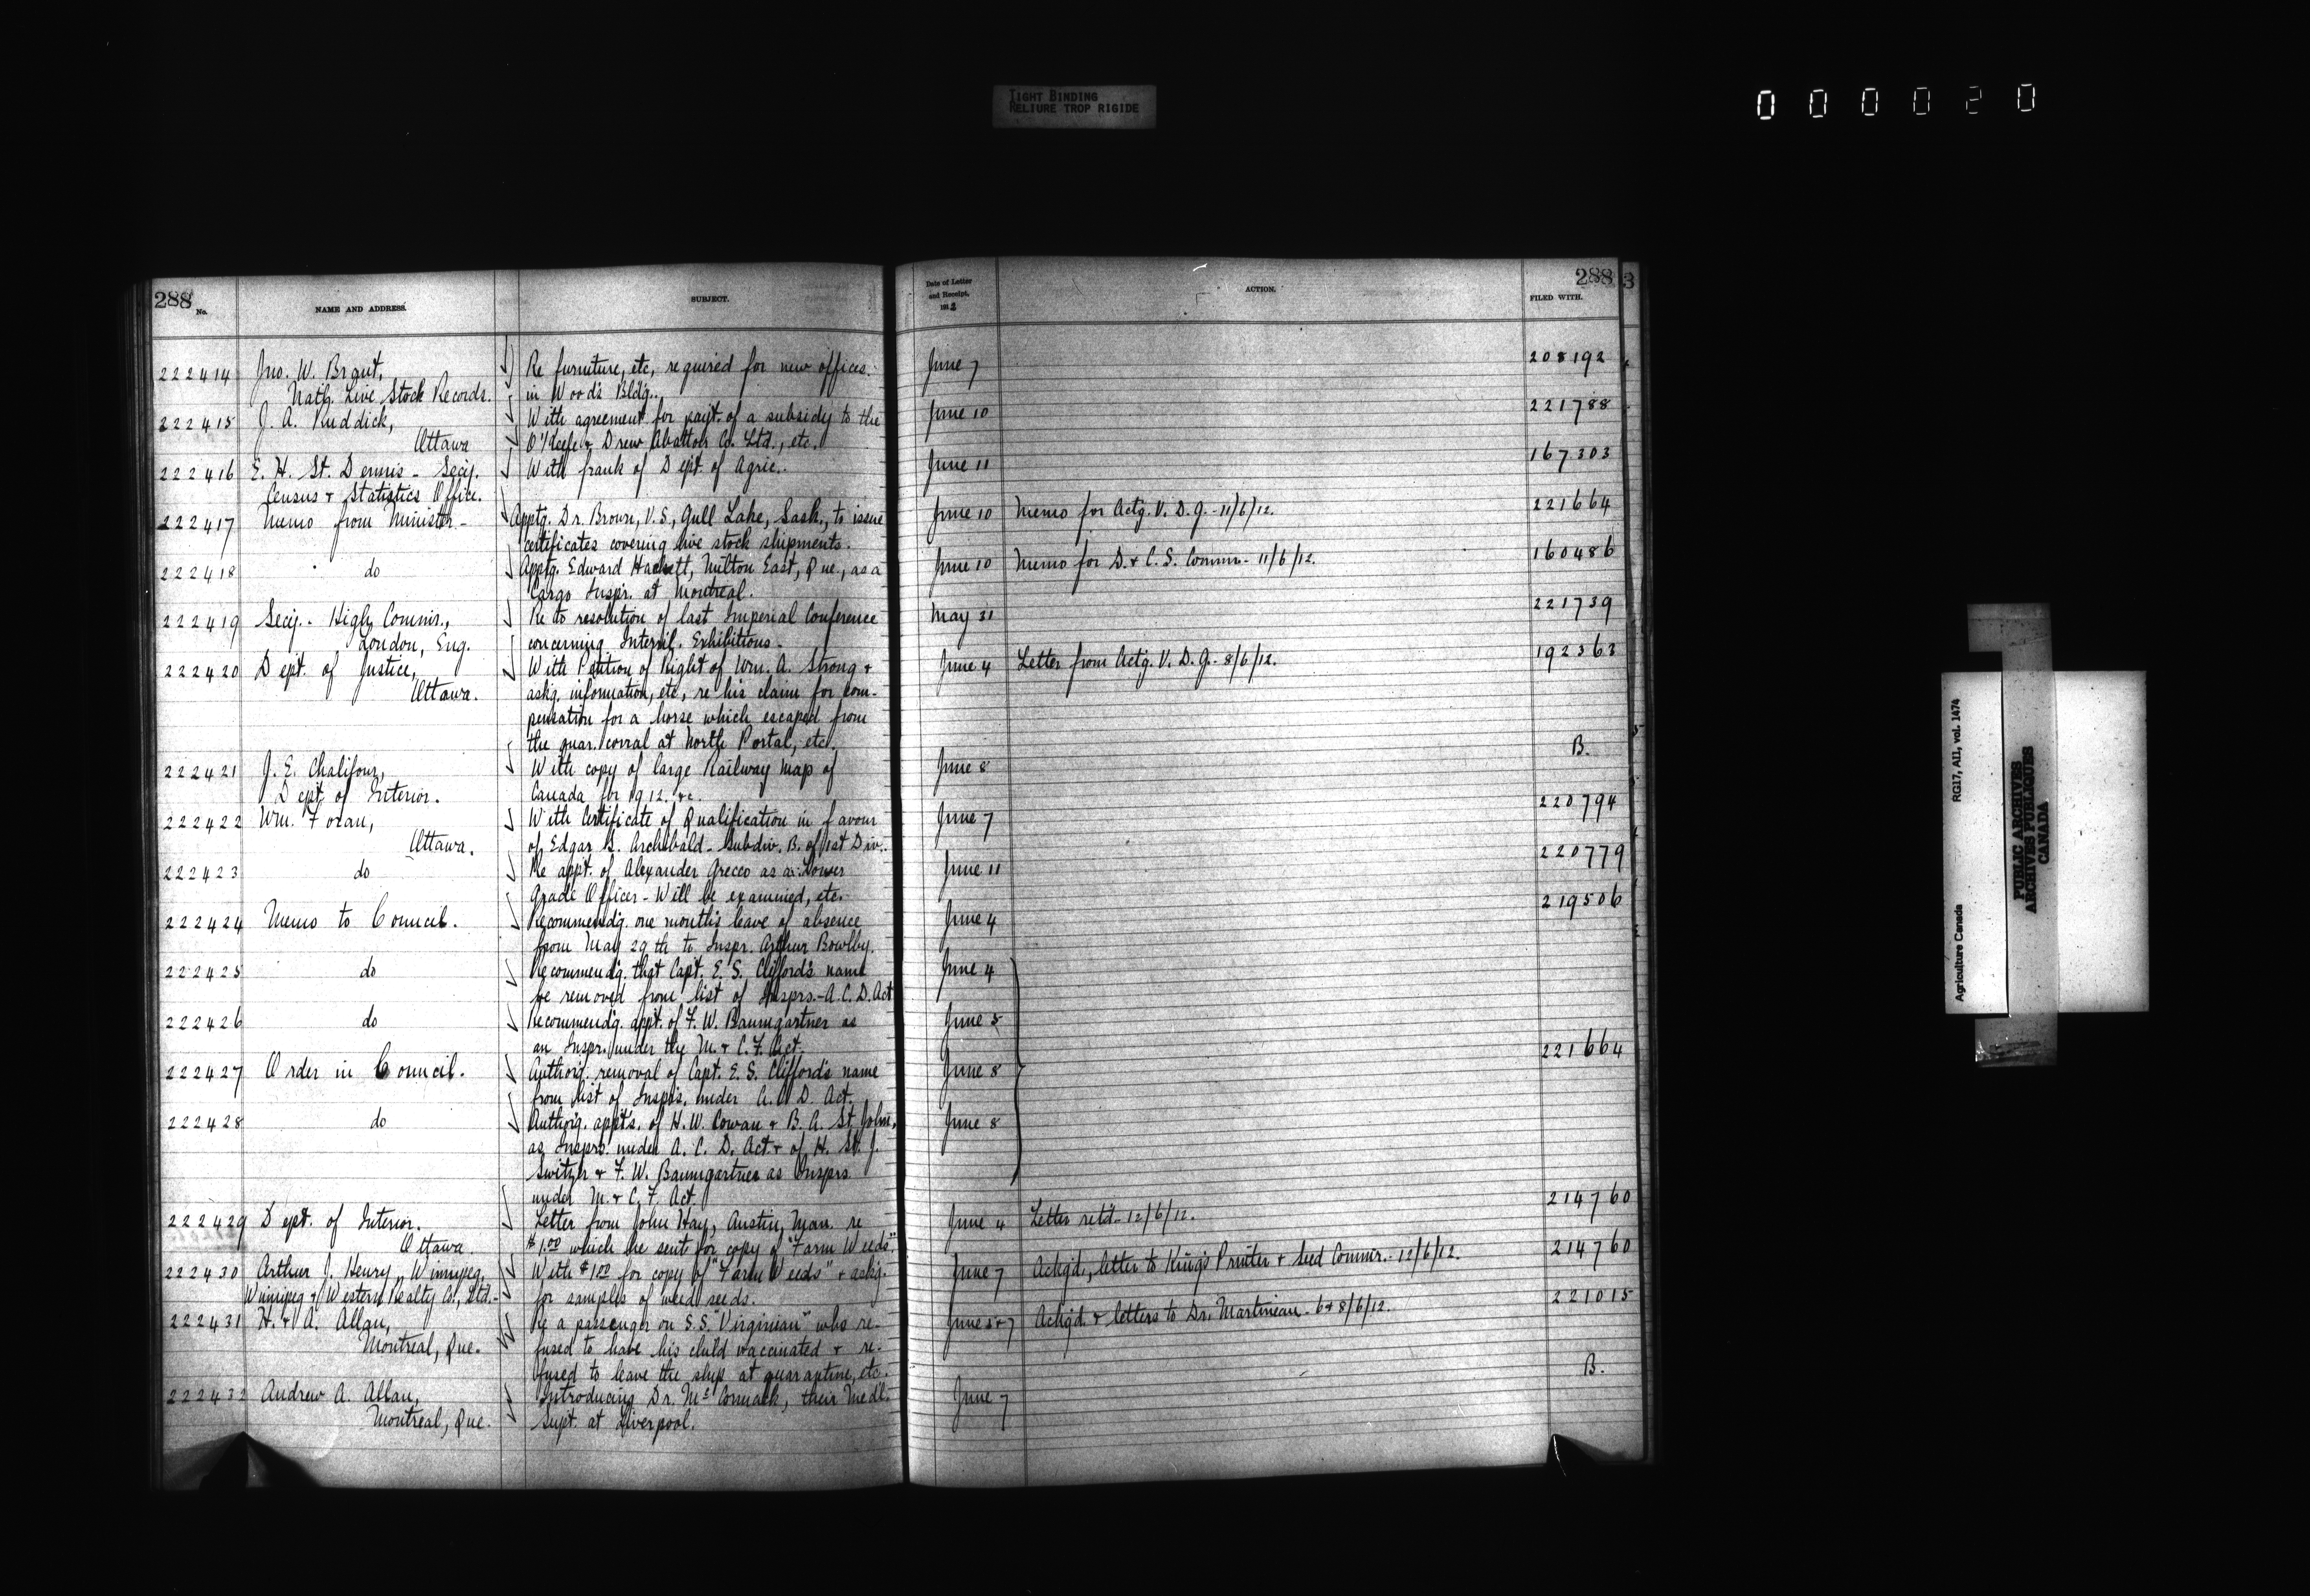 TIGHT BINDING
RELIURE TROP RIGIDE
000020
288
No.
NAME AND ADDRESS.
SUBJECT.
Date of Letter
and Receipt,
1912
ACTION.
288
FILED WITH.
3
222414 Jno. W. Brant, Re furniture, etc, required for new offices. June 7 208192
Natl. Live Stock Records. in Woods Bldg..
222415 J. A. Ruddick, With agreement for payt. of a subsidy to the June 10 221788
Ottawa O'Keefe & Drew Abattoir Co. Ltd., etc.
222416 E. H. St. Dennis - Secy. With frank of Dept. of Agric.. June 11 167303
Census & Statistics Office.
222417 Memo from Minister - Apptg. Dr. Brown, V.S., Gull Lake, Sask., to issue June 10 Memo for Actg. V. D. G. - 11/6/12. 221664
certificates covering live stock shipments.
222418 do Apptg. Edward Hackett, Milton East, Que., as a June 10 Memo for D. & C. S. Commr. - 11/6/12. 160486
Cargo Inspr. at Montreal.
222419 Secy. - High Commr., Re to resolution of last Imperial Conference May 31 221739
London, Eng. concerning Internl. Exhibitions.
222420 Dept. of Justice, With Petition of Right of Wm. A. Strong & June 4 Letter from Actg. V. D. G. - 8/6/12. 192363
Ottawa. askg. information, etc, re his claim for com-
pensation for a horse which escaped from
the quar. corral at North Portal, etc.
222421 J. E. Chalifour, With copy of large Railway Map of June 8 B.
Dept. of Interior. Canada for 1912. &c.
222422 Wm. Foran, With Certificate of Qualification in favour June 7 220794
Ottawa. of Edgar S. Archibald - Subdiv. B. of 1st Div..
222423 do Re appt. of Alexander Grecco as a Lower June 11 220779
Grade Officer - Will be examined, etc.
222424 Memo to Council. Recommendg. one month's leave of absence June 4 219506
from May 29th to Inspr. Arthur Bowlby.
222425 do Recommendg. that Capt. E. S. Clifford's name June 4
be removed from list of Insprs. - A.C.D. Act
222426 do Recommendg. appt. of F. W. Baumgartner as June 5
an Inspr. under the M. & C. F. Act.
222427 Order in Council. Authorg. removal of Capt. E. S. Clifford's name June 8 221664
from list of Insprs. under A. C. D. Act.
222428 do Authorg. appts. of H. W. Cowan & B. A. St. John, June 8
as Insprs. under A. C. D. Act & of H. St. J.
Switzer & F. W. Baumgartner as Insprs.
under M. & C. F. Act.
222429 Dept. of Interior. Letter from John Hay, Austin, Man. re June 4 Letter retd. - 12/6/12. 214760
Ottawa. $1.00 which he sent for copy of "Farm Weeds".
222430 Arthur J. Henry, Winnipeg, With $1.00 for copy of "Farm Weeds" & askg. June 7 Ackgd., letter to King's Printer & Seed Commr. - 12/6/12. 214760
Winnipeg & Western Realty Co., Ltd. - for samples of weed seeds.
222431 H. & A. Allan, Re a passenger on S.S. "Virginian" who re- June 5 & 7 Ackgd. & letters to Dr. Martineau - 6 & 8/6/12. 221015
Montreal, Que. fused to have his child vaccinated & re-
fused to leave the ship at quarantine, etc.
222432 Andrew A. Allan, Introducing Dr. McCormack, their Medl. June 7 B.
Montreal, Que. Supt. at Liverpool.
Agriculture Canada
RG17, AII, vol. 1474
PUBLIC ARCHIVES
ARCHIVES PUBLIQUES
CANADA